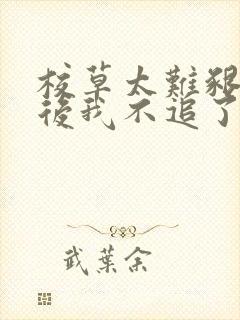 校草太難追
後我不追了
武葉余